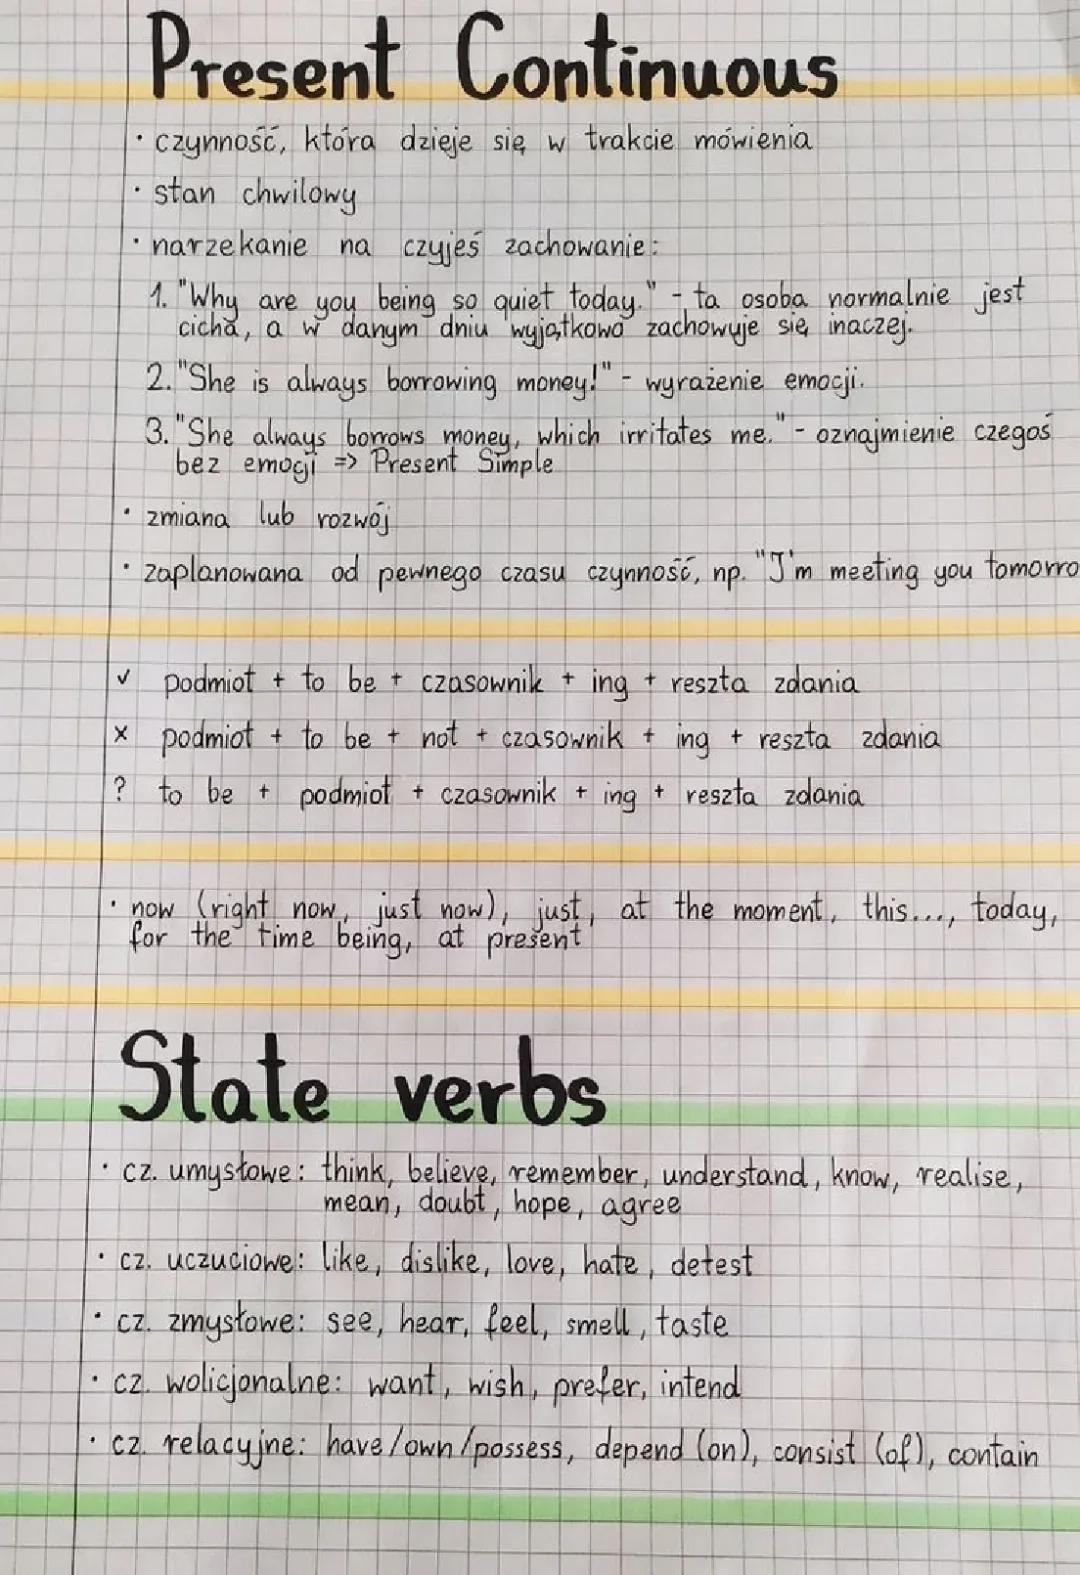 Present Continuous
· czynność, która dzieje się w trakcie mówienia
· stan chwilowy
· narzekanie na czyjeś zachowanie:
1. "Why are you being so quiet today." - ta osoba normalnie jest
cicha, a w danym dniu wyjątkowo zachowuje się inaczej.
2. "She is always borrowing money!" - wyrażenie emocji.
3. "She always borrows money, which irritates me." - oznajmienie czegoś
bez emocji => Present Simple
· zmiana lub rozwój
· zaplanowana od pewnego czasu czynność, np. "I'm meeting you tomorro
✓ podmiot + to be + czasownik + ing + reszta zdania
× podmiot + to be + not + czasownik + ing + reszta zdania
? to be + podmiot + czasownik + ing + reszta zdania
· now (right now, just now), just, at the moment, this..., today,
for the time being, at present
State verbs
· cz. umysłowe: think, believe, remember, understand, know, realise,
mean, doubt, hope, agree
· cz. uczuciowe: like, dislike, love, hate, detest
· cz. zmysłowe: see, hear, feel, smell, taste
· cz. wolicjonalne: want, wish, prefer, intend
· cz. relacyjne: have/own/possess, depend (on), consist (of), contain